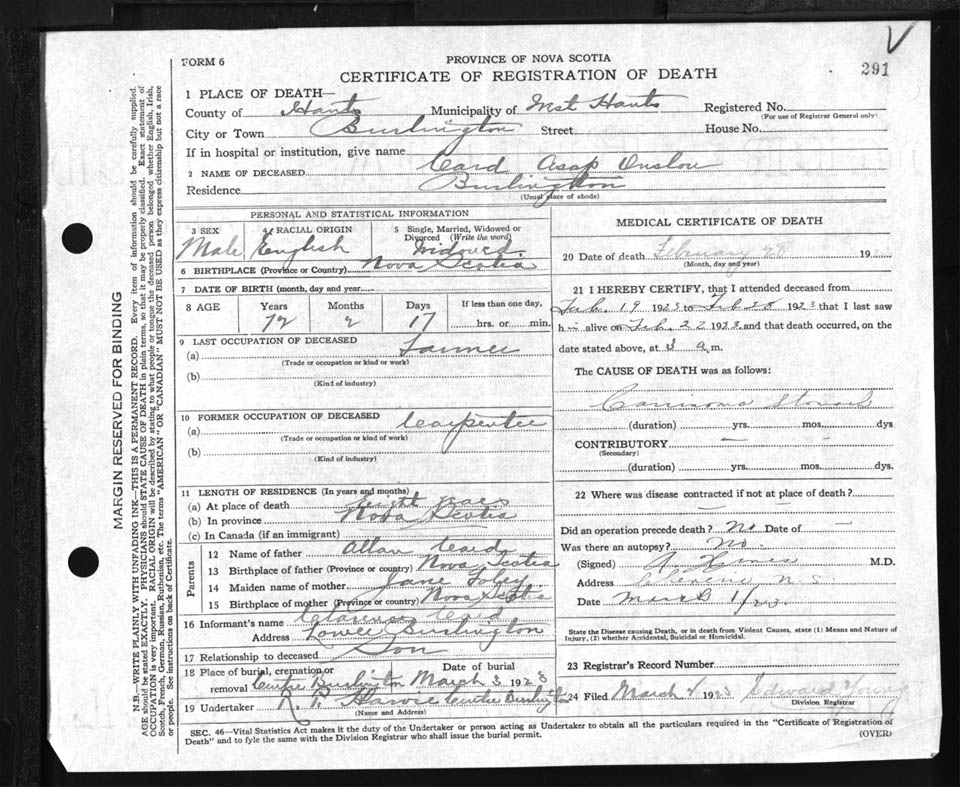 V
291
FORM 6
PROVINCE OF NOVA SCOTIA
CERTIFICATE OF REGISTRATION OF DEATH
MARGIN RESERVED FOR BINDING
N.B.—WRITE PLAINLY WITH UNFADING INK—THIS IS A PERMANENT RECORD. Every item of information should be carefully supplied.
AGE should be stated EXACTLY. PHYSICIANS should STATE CAUSE OF DEATH in plain terms, so that it may be properly classified. Exact statement of
OCCUPATION is very important. RACIAL ORIGIN will be described by stating to what people or tongue the deceased person belonged whether English, Irish,
Scotch, French, German, Russian, Ruthenian, etc. The terms "AMERICAN" OR "CANADIAN" MUST NOT BE USED as they express citizenship but not a race
or people. See instructions on back of Certificate.
1 PLACE OF DEATH—
County of Hants Municipality of West Hants Registered No.
(For use of Registrar General only)
City or Town Burlington Street House No.
If in hospital or institution, give name
2 NAME OF DECEASED Card Asap Onslow
Residence Burlington
(Usual place of abode)
PERSONAL AND STATISTICAL INFORMATION
3 SEX Male
4 RACIAL ORIGIN English
5 Single, Married, Widowed or Divorced (Write the word) Widowed
6 BIRTHPLACE (Province or Country) Nova Scotia
7 DATE OF BIRTH (month, day and year)
8 AGE Years Months Days If less than one day,
72 2 17 hrs. or min.
9 LAST OCCUPATION OF DECEASED
(a) Farmer
(Trade or occupation or kind or work)
(b)
(Kind of industry)
10 FORMER OCCUPATION OF DECEASED
(a) Carpenter
(Trade or occupation or kind of work)
(b)
(Kind of industry)
11 LENGTH OF RESIDENCE (In years and months)
(a) At place of death
(b) In province Nova Scotia
(c) In Canada (if an immigrant)
Parents
12 Name of father Allan Card
13 Birthplace of father (Province or country) Nova Scotia
14 Maiden name of mother Jane
15 Birthplace of mother (Province or country) Nova Scotia
16 Informant's name Clarence Card
Address Lower Burlington
17 Relationship to deceased Son
18 Place of burial, cremation or removal Centre Burlington Date of burial March 3 1923
19 Undertaker Centre Burlington
(Name and Address)
MEDICAL CERTIFICATE OF DEATH
20 Date of death February 28 19
(Month, day and year)
21 I HEREBY CERTIFY, that I attended deceased from
Feb. 19 1923 to Feb 28 1923 that I last saw
h im alive on Feb. 22 1923 and that death occurred, on the
date stated above, at 3 a. m.
The CAUSE OF DEATH was as follows:
Carcinoma Stomach
(duration) yrs. mos. dys
CONTRIBUTORY
(Secondary)
(duration) yrs. mos. dys.
22 Where was disease contracted if not at place of death?
Did an operation precede death? No Date of
Was there an autopsy? No.
(Signed) M.D.
Address N.S.
Date March 1/23.
State the Disease causing Death, or in death from Violent Causes, state (1) Means and Nature of
Injury, (2) whether Accidental, Suicidal or Homicidal.
23 Registrar's Record Number
24 Filed March 1923 Edward Young
Division Registrar
SEC. 46—Vital Statistics Act makes it the duty of the Undertaker or person acting as Undertaker to obtain all the particulars required in the "Certificate of Registration of
Death" and to fyle the same with the Division Registrar who shall issue the burial permit.
(OVER)